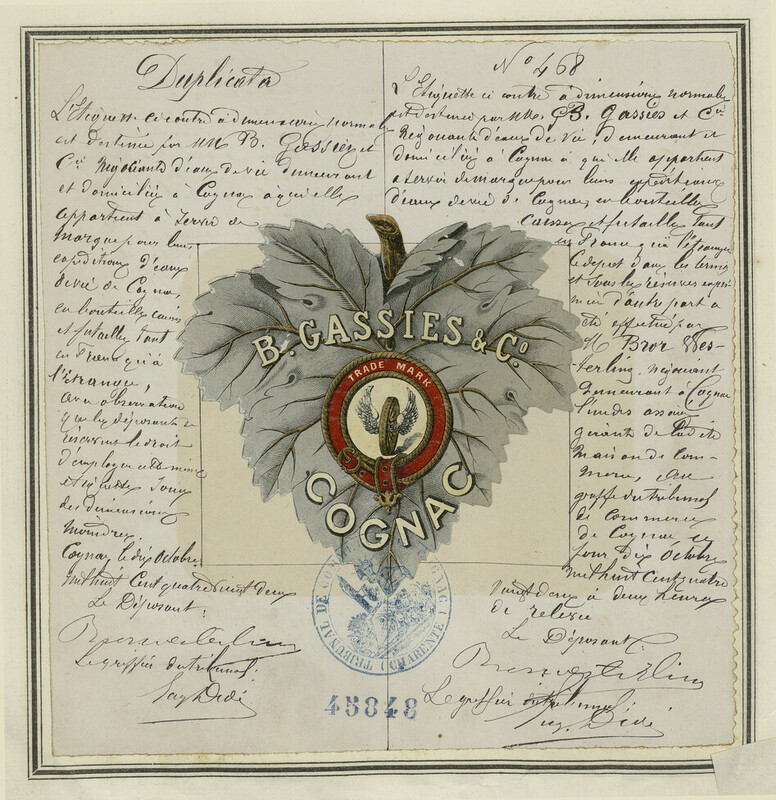 Duplicata
L'étiquette ci contre à dimensions normales
est destinée par MM B. Gassies et
Cie Négociants d'eaux de vie demeurant
et domiciliés à Cognac à qui elle
appartient à servir de
marque pour leurs
expéditions d'eaux
de vie de Cognac,
en bouteilles caisses
et futailles tant
en France qu'à
l'étranger
avec observation
que les déposants se
réservent le droit
d'employer cette même
étiquette sous
des dimensions
moindres.
Cognac, le dix Octobre
mil huit Cent quatre vingt deux
Le Déposant:
Le greffier du tribunal
No 468
L'étiquette ci contre à dimensions normales
est destinée par MM. B. Gassies et Cie
Négociants d'eaux de vie, demeurant et
domiciliés à Cognac à qui elle appartient
à servir de marque pour leurs expéditions
d'eaux de vie de Cognac, en bouteilles
caisses et futailles tant
en France qu'à l'étranger
le dépôt dans les termes
et sous les réserves expri-
mées d'autre part a
été effectué par
M Bror Wes-
terling, négociant
demeurant à Cognac
l'un des associés
gérants de ladite
maison de com-
merce, au
greffe du tribunal
de Commerce
de Cognac ce
jour dix Octobre
mil huit Cent quatre
vingt deux à deux heures
de relevée
Le Déposant
Le greffier du tribunal
B. GASSIES & Co
TRADE MARK
COGNAC
TRIBUNAL DE COGNAC (CHARENTE)
45848